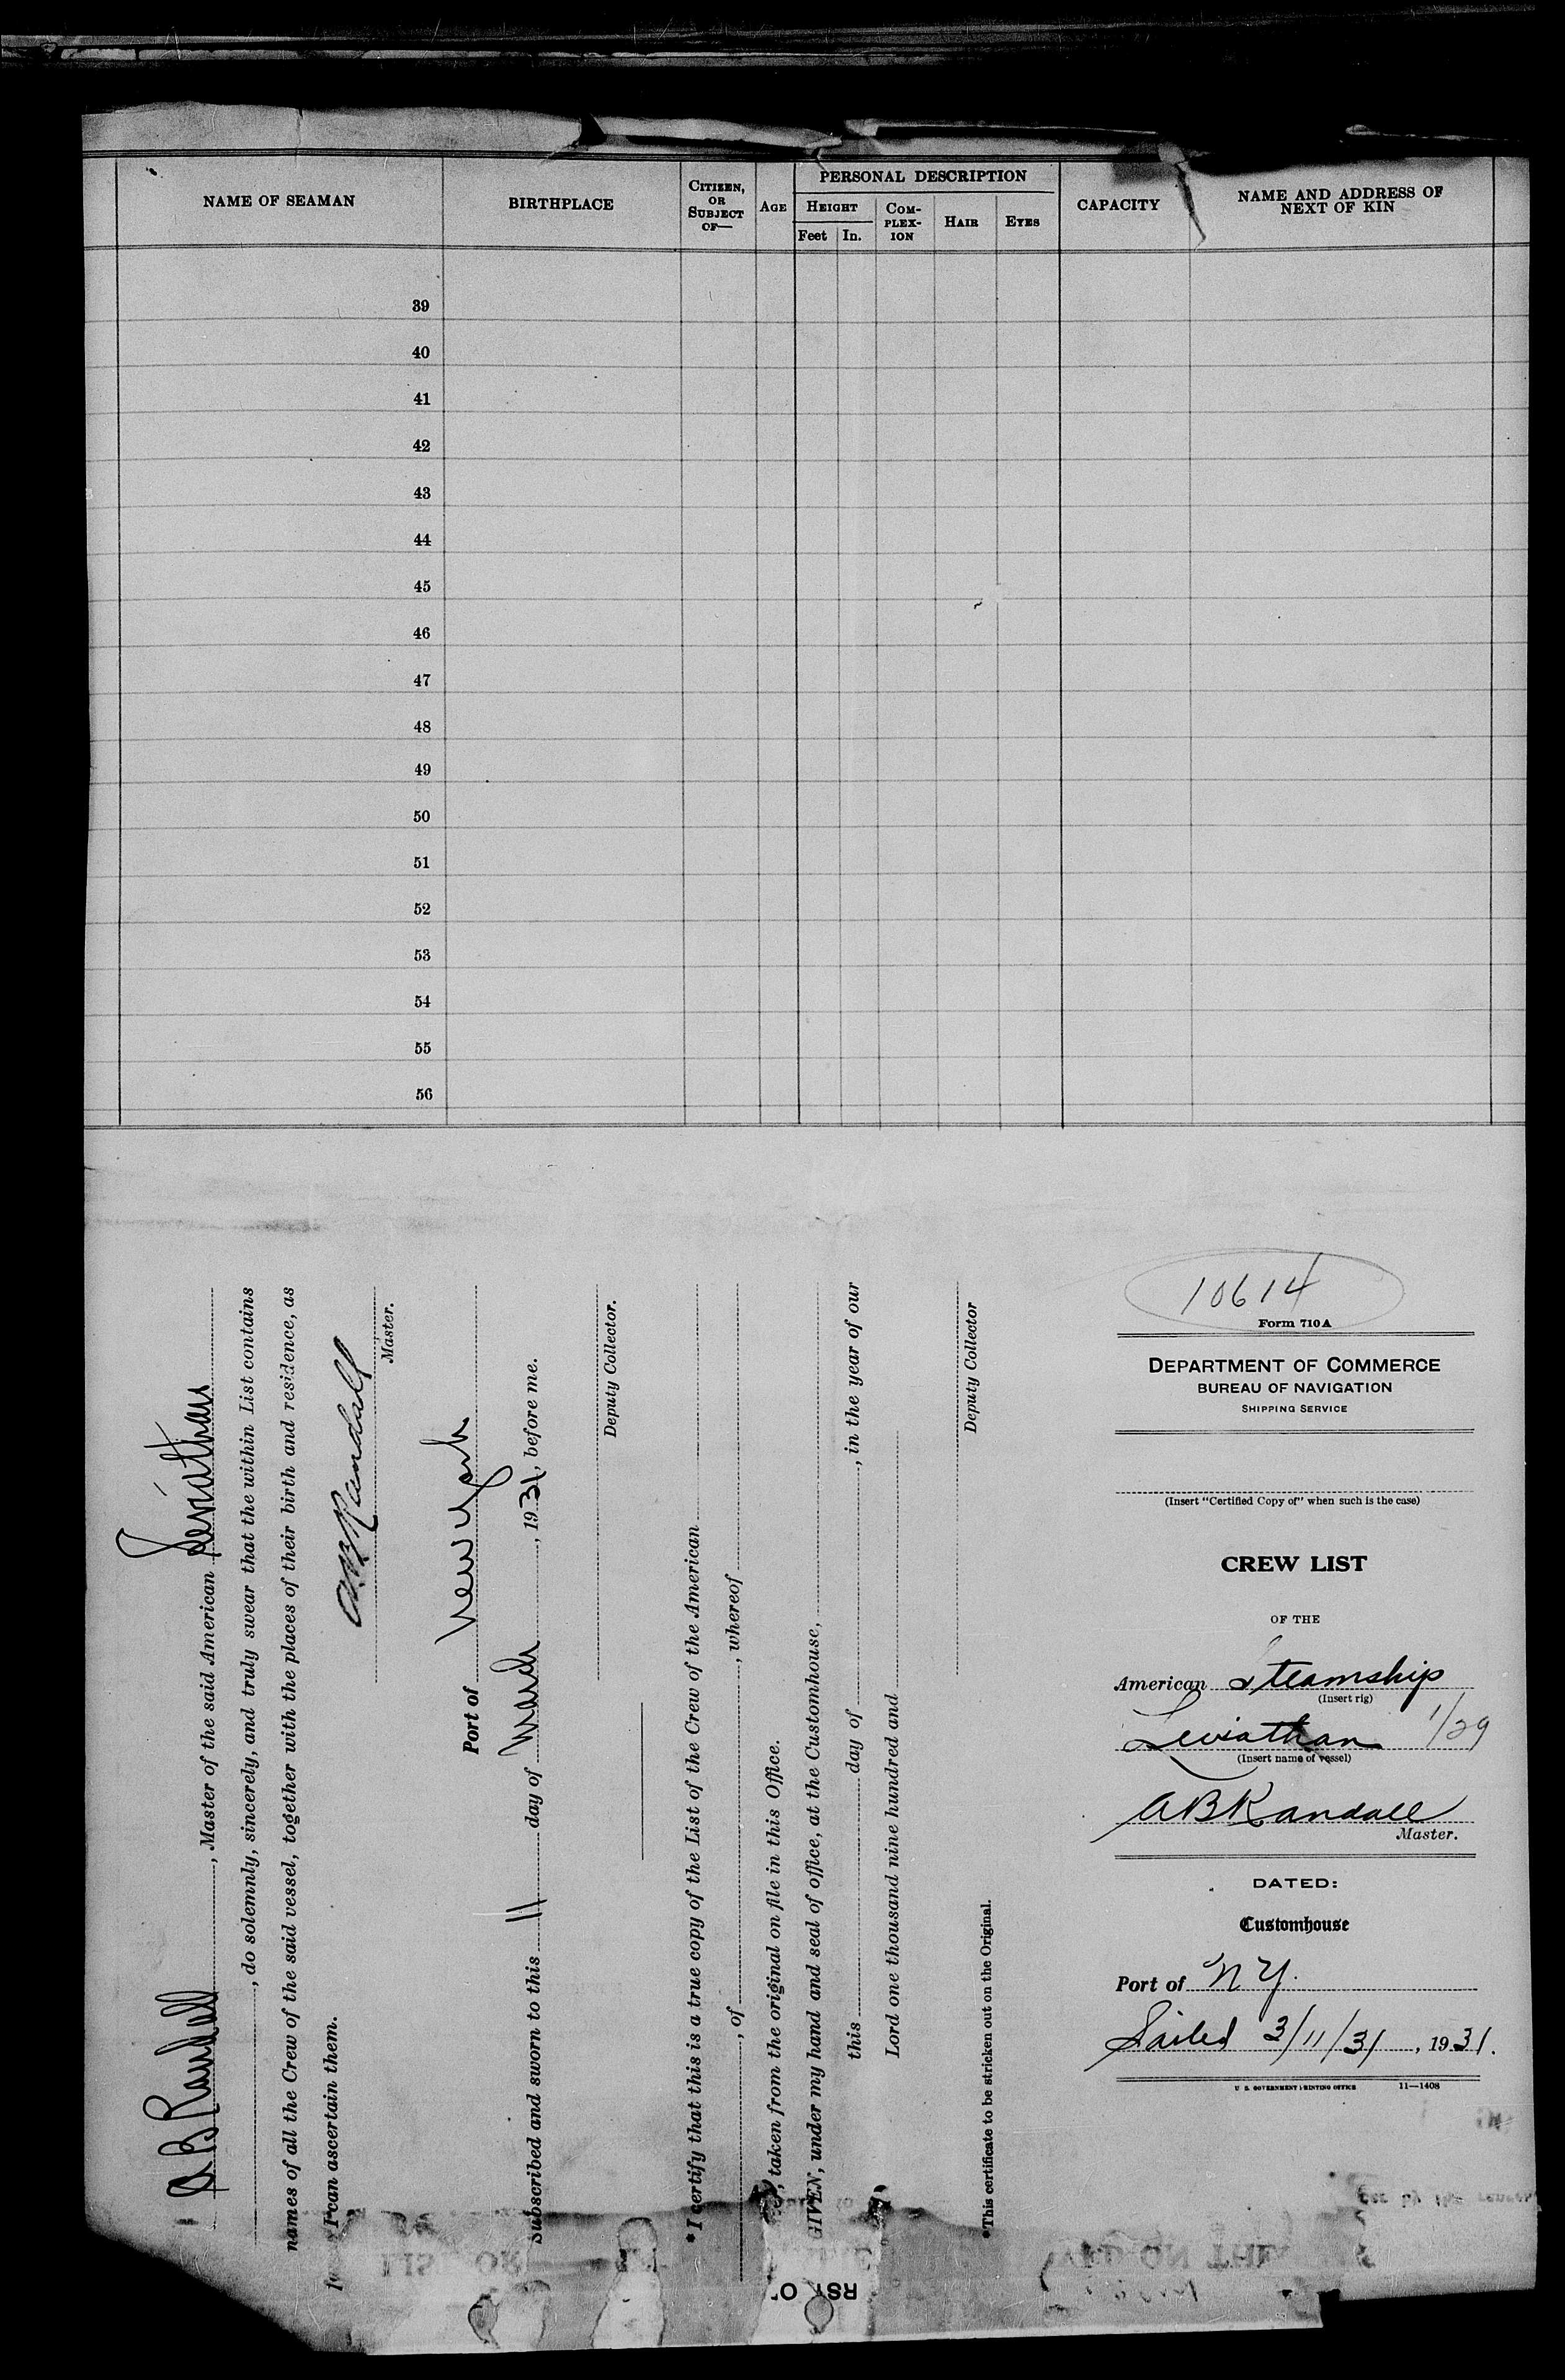 NAME OF SEAMAN
BIRTHPLACE
CITIZEN, OR SUBJECT OF—
AGE
PERSONAL DESCRIPTION
HEIGHT
Feet
In.
COM-PLEX-ION
HAIR
EYES
CAPACITY
NAME AND ADDRESS OF NEXT OF KIN
39
40
41
42
43
44
45
46
47
48
49
50
51
52
53
54
55
56
I A B Randall, Master of the said American Leviathan
, do solemnly, sincerely, and truly swear that the within List contains
names of all the Crew of the said vessel, together with the places of their birth and residence, as
I can ascertain them.
A B Randall
Master.
Port of New York
Subscribed and sworn to this 11 day of March, 1931, before me.
Deputy Collector.
*I certify that this is a true copy of the List of the Crew of the American
, of , whereof
, taken from the original on file in this Office.
GIVEN, under my hand and seal of office, at the Customhouse,
this day of , in the year of our
Lord one thousand nine hundred and
Deputy Collector
*This certificate to be stricken out on the Original.
10614
Form 710A
DEPARTMENT OF COMMERCE
BUREAU OF NAVIGATION
SHIPPING SERVICE
(Insert "Certified Copy of" when such is the case)
CREW LIST
OF THE
American Steamship
(Insert rig)
Leviathan 1/29
(Insert name of vessel)
A B Randall
Master.
DATED:
Customhouse
Port of N Y.
Sailed 3/11/31, 1931.
U. S. GOVERNMENT PRINTING OFFICE 11—1408